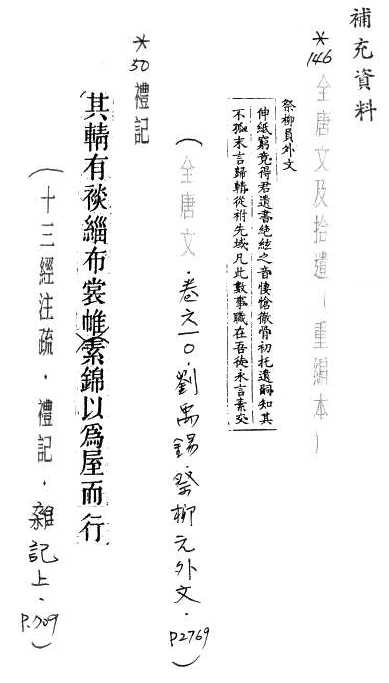 補充資料
*146 全唐文及拾遺（重編本）
祭柳員外文
伸紙窮竟得君遺書絶絃之音悽愴徹骨初托遺嗣知其
不孤末言歸輤從祔先域凡此數事職在吾徒永言素交
（全唐文．卷六一〇．劉禹錫．祭柳元外文．P2769）
*50 禮記
其輤有裧緇布裳帷素錦以爲屋而行
（十三經注疏．禮記．雜記上．P.709）